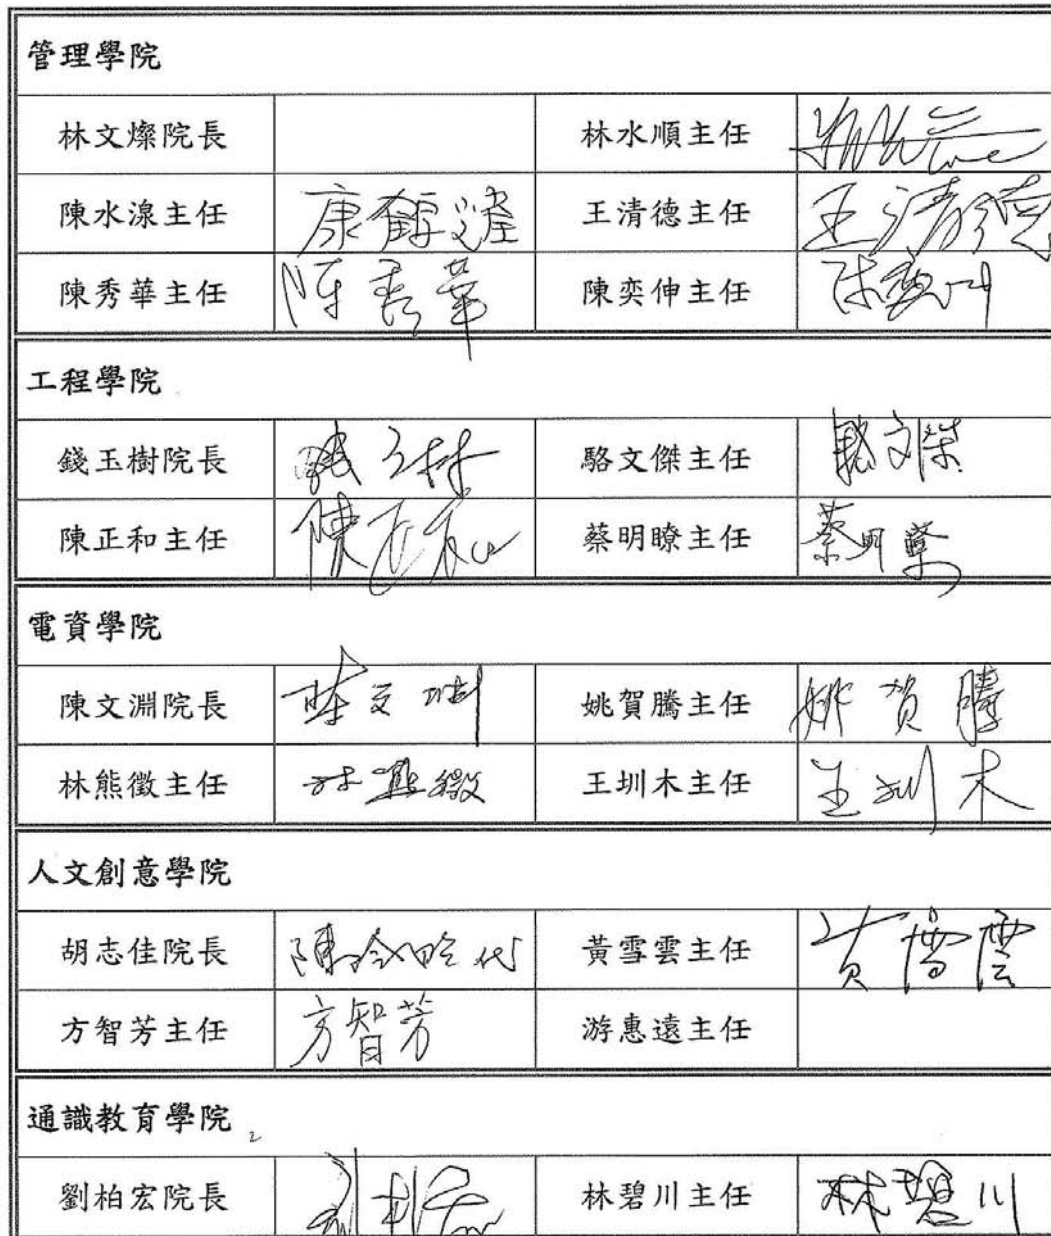 管理學院
林文燦院長 林水順主任
陳水湶主任 王清德主任 王清德
陳秀華主任 陳秀華 陳奕伸主任
工程學院
錢玉樹院長 駱文傑主任 駱文傑
陳正和主任 陳正和 蔡明瞭主任
電資學院
陳文淵院長 姚賀騰主任 姚賀騰
林熊徵主任 林熊徵 王圳木主任 王圳木
人文創意學院
胡志佳院長 黃雪雲主任
方智芳主任 方智芳 游惠遠主任
通識教育學院
劉柏宏院長 林碧川主任 林碧川